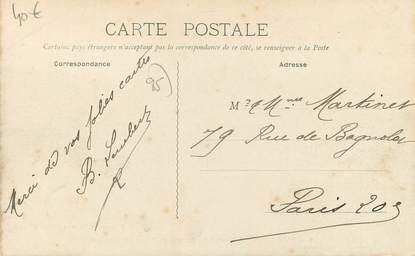 40€
CARTE POSTALE
Certains pays étrangers n'acceptant pas la correspondance de ce côté, se renseigner à la Poste
Correspondance
Adresse
95
Merci de vos jolies cartes
B. Lambert
Mr & Mmes Martinet
79 Rue de Bagnolet
Paris 20e